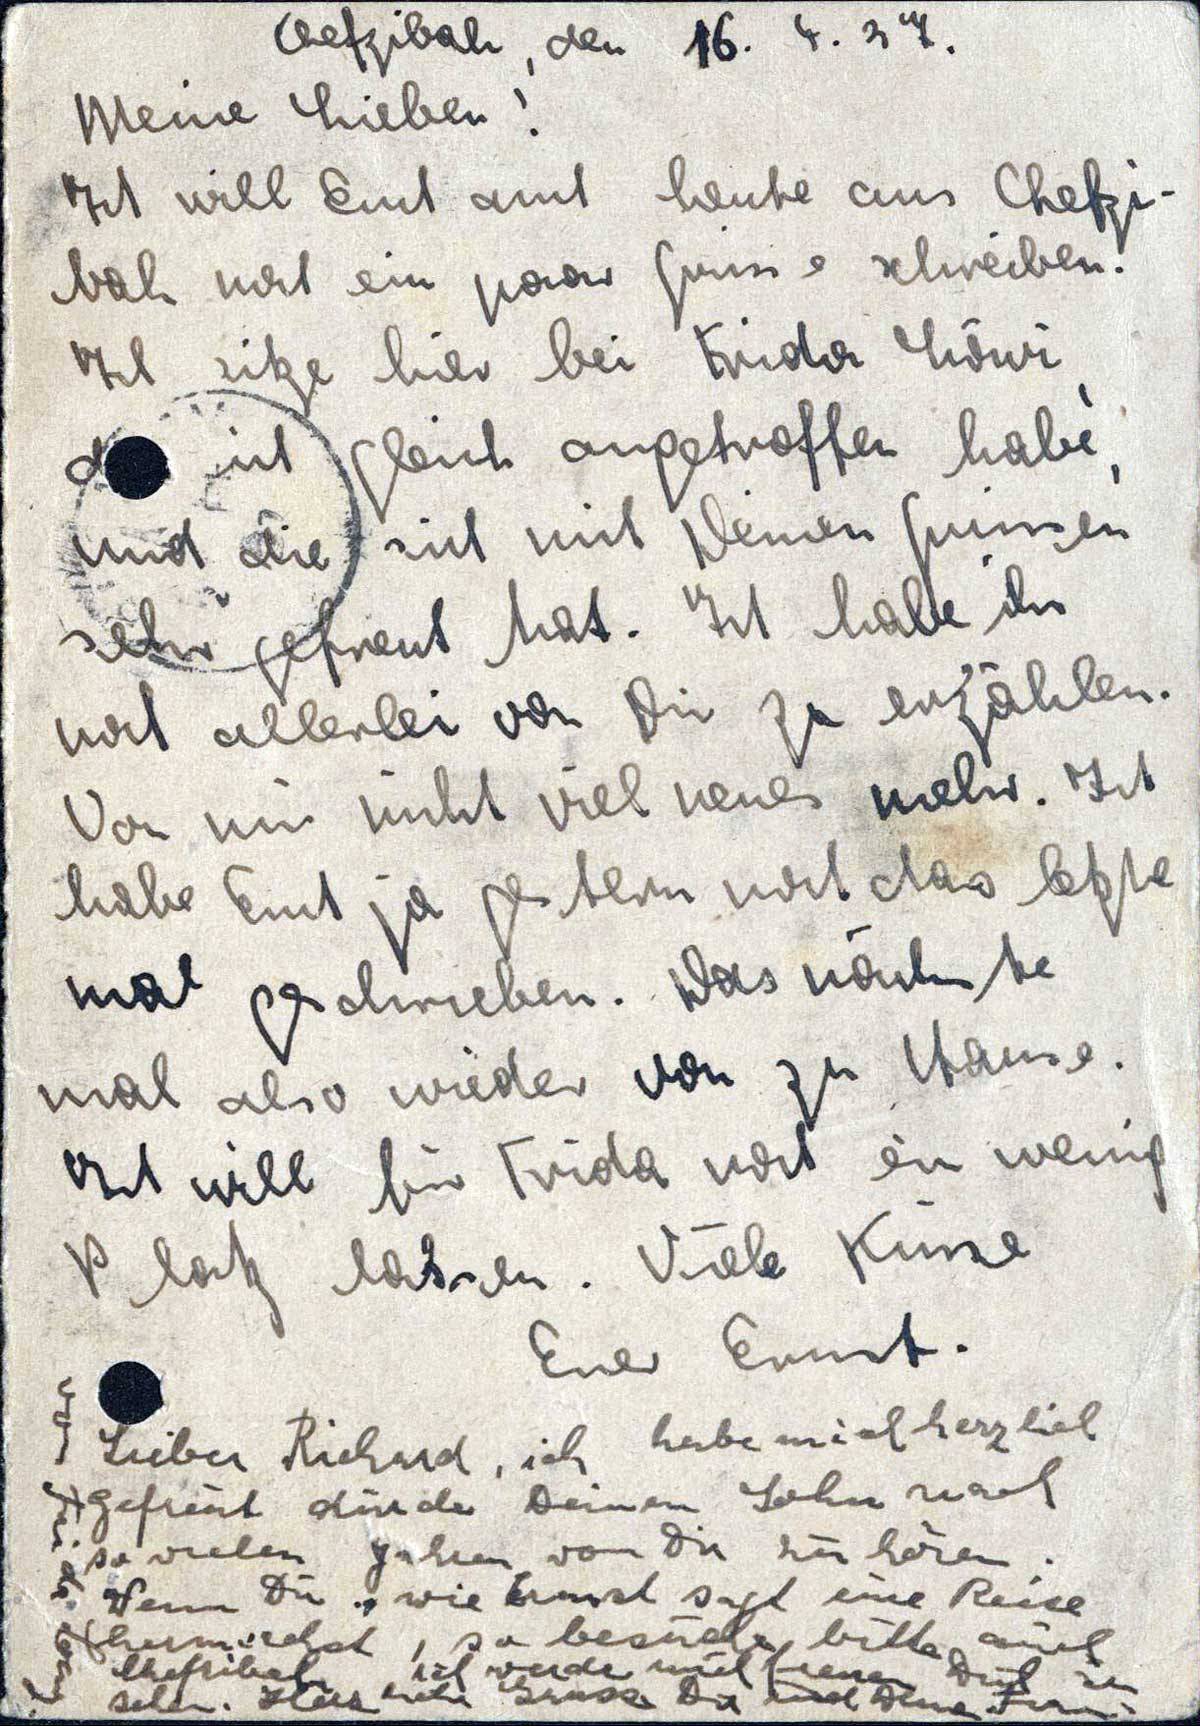 Chefzibah, den 16. 4. 37.
Meine Lieben!
Ich will Euch auch heute aus Chefzi-
bah noch ein paar Grüsse schreiben.
Ich sitze hier bei Frida Löwi,
d ich gleich angetroffen habe,
und die sich mit Deinen Grüssen
sehr gefreut hat. Ich habe ihr
noch allerlei von Dir zu erzählen.
Von mir nicht viel neues mehr. Ich
habe Euch ja gestern noch das letzte
mal geschrieben. Das nächste
mal also wieder von zu Hause.
Ich will für Frida noch ein wenig
Platz lassen. Viele Küsse
Euer Ernst.
Lieber Richard, ich habe mich herzlich
gefreut durch Deinen Sohn nach
so vielen Jahren von Dir zu hören.
Wenn Du, wie Ernst sagt eine Reise
hermachst, so besuche bitte auch
Chefzibah, ich werde mich freuen Dich zu
sehn. Herzliche Grüsse Dir und Deine Frau.
Frida